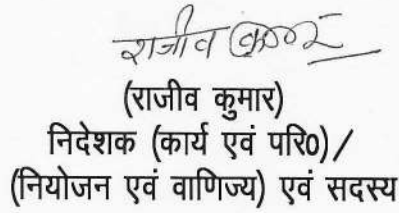 राजीव कुमार
(राजीव कुमार)
निदेशक (कार्य एवं परि0)/
(नियोजन एवं वाणिज्य) एवं सदस्य